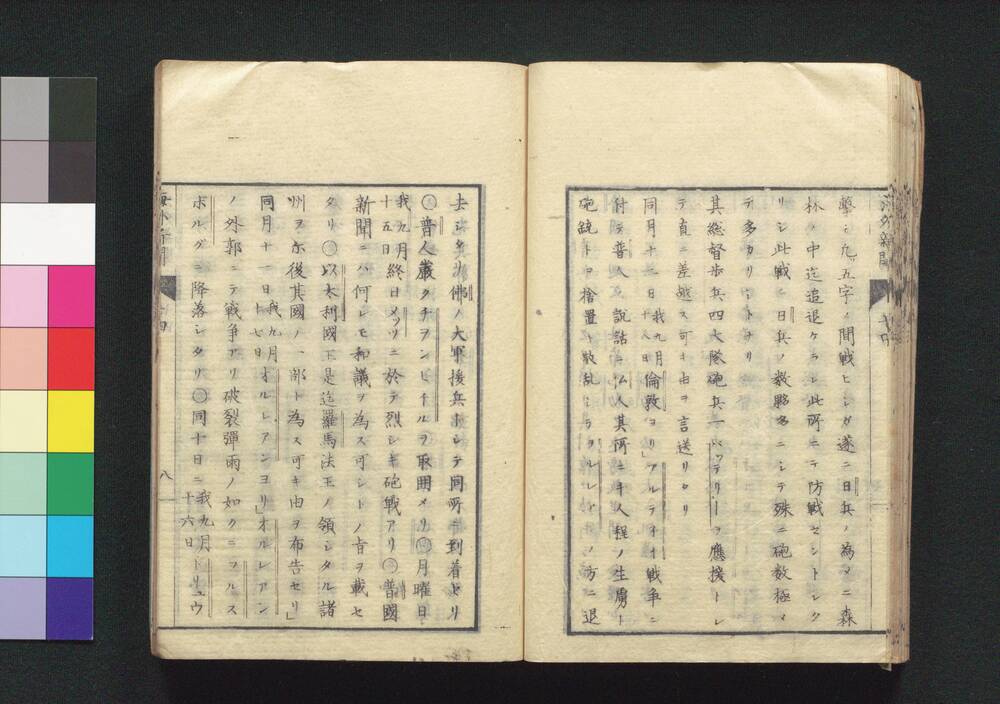 撃シ九ツ五字ノ間戦ヒシガ遂ニ日兵ノ為メニ森
林ノ中迄追退ケラレ此所ニテ防戦セントシタ
リシ此戦ニ日兵ノ数夥多ニシテ殊ニ砲数極メ
テ多カリシト
其総督歩兵四大隊砲兵一バッテリーヲ應援トシ
テ直ニ差越ス可キ由ヲ言送リタリ
同月十二日我九月十八日倫敦ヨリ」アルテイオ戦争ニ
付テ普人ノ説話ニ仏人其所ニ千人程ノ生虜ト
砲銃トヲ捨置キ散乱シラウルレイオノ方ニ退
去シ
佛ノ大軍援兵トシテ同所ニ到着セリ
〇普人嚴クチヲンビールヲ取囲メリ〇月曜日
我九月十五日終日メッツニ於テ烈シキ砲戦アリ〇普國
新聞ニハ何レモ和議ヲ為ス可シトノ旨ヲ載セ
タリ〇以太利國王是迄羅馬法王ノ領シタル諸
州ヲ尓後其國ノ一部ト為ス可キ由ヲ布告セリ」
同月十一日我九月十七日オルレアンヨリ」オルレアン
ノ外郭ニテ戦争アリ破裂彈雨ノ如クニフルス
ボルグニ降落シタリ〇同十日ニ我九月十六日トリュウ
八